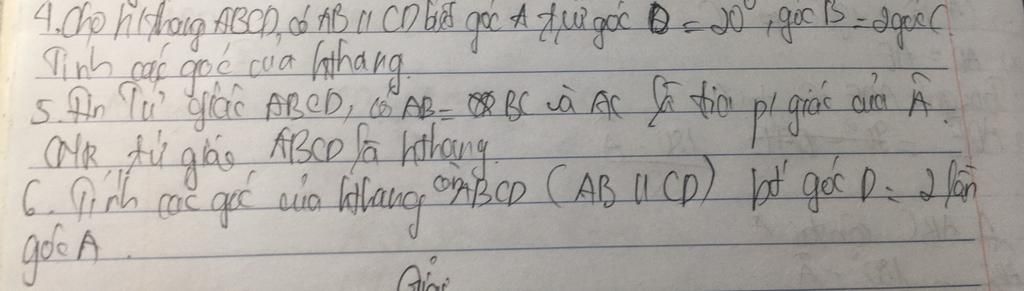 4. Cho hthang ABCD, có AB || CD biết góc A trừ góc D = 20°, góc B = 2 góc C
Tính các góc của hthang.
5. Tứ giác ABCD, có AB = BC và AC là tia p/ giác của Â.
CMR tứ giác ABCD là hthang.
6. Tính các góc của hthang ABCD (AB || CD) bt góc D = 2 lần
góc A.
Giải